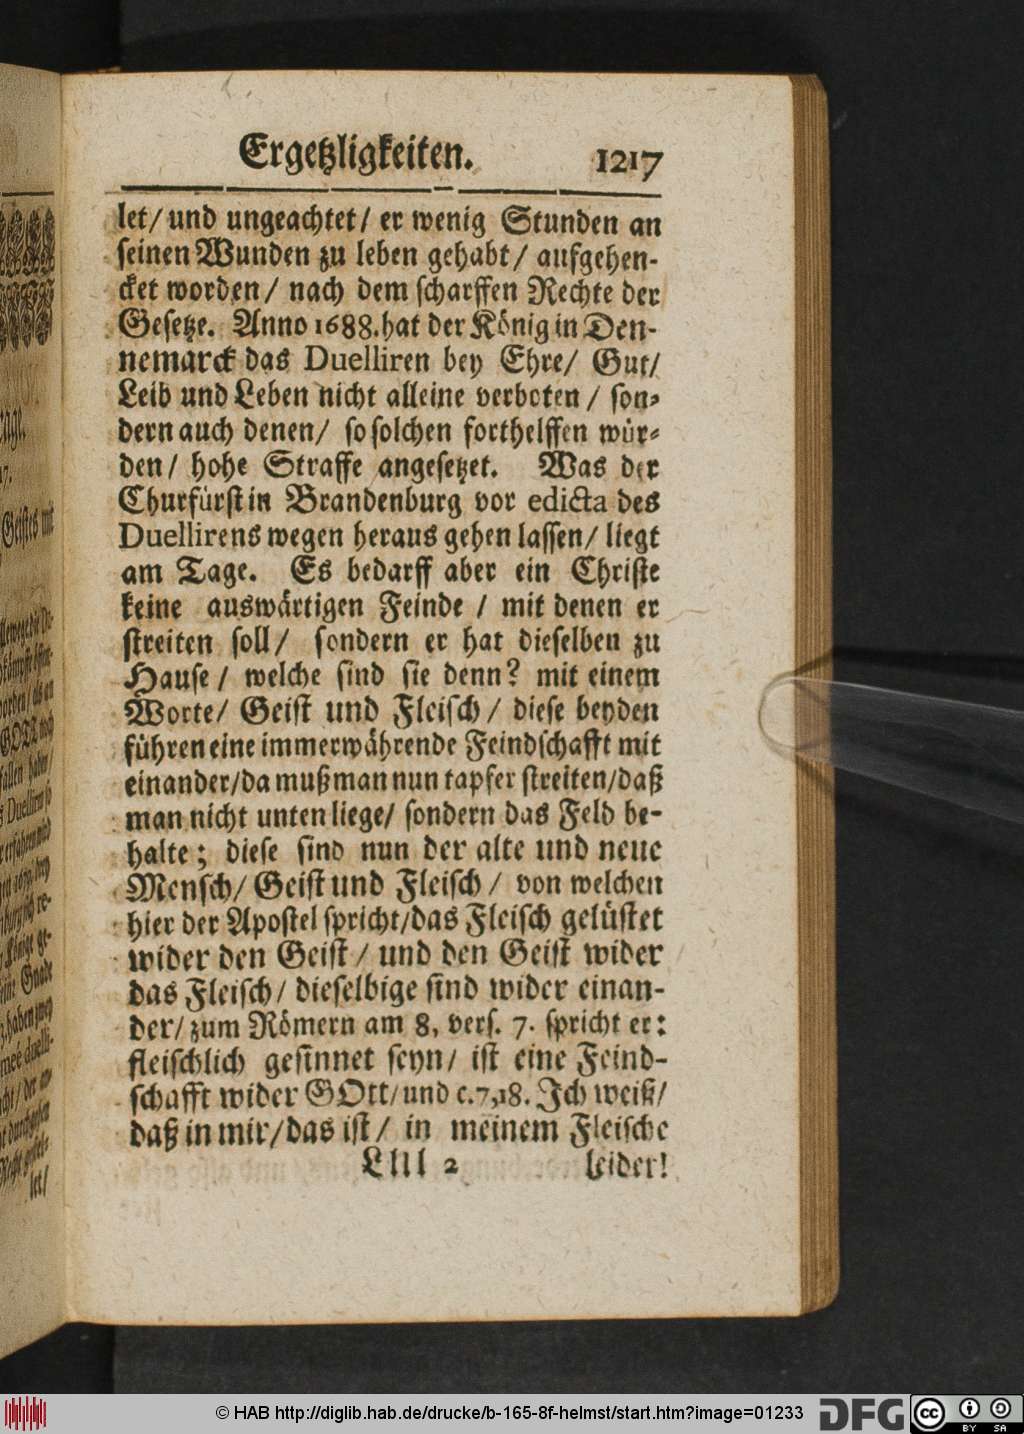 Ergetzligkeiten. 1217
let/ und ungeachtet/ er wenig Stunden an
seinen Wunden zu leben gehabt/ aufgehen-
cket worden/ nach dem scharffen Rechte der
Gesetze. Anno 1688. hat der König in Den-
nemarck das Duelliren bey Ehre/ Gut/
Leib und Leben nicht alleine verboten/ son-
dern auch denen/ so solchen forthelffen wür-
den/ hohe Straffe angesetzet. Was der
Churfürst in Brandenburg vor edicta des
Duellirens wegen heraus gehen lassen/ liegt
am Tage. Es bedarff aber ein Christe
keine auswärtigen Feinde / mit denen er
streiten soll/ sondern er hat dieselben zu
Hause/ welche sind sie denn? mit einem
Worte/ Geist und Fleisch/ diese beyden
führen eine immerwährende Feindschafft mit
einander/da muß man nun tapfer streiten/daß
man nicht unten liege/ sondern das Feld be-
halte; diese sind nun der alte und neue
Mensch/ Geist und Fleisch/ von welchen
hier der Apostel spricht/das Fleisch gelüstet
wider den Geist/ und den Geist wider
das Fleisch/ dieselbige sind wider einan-
der/ zum Römern am 8, vers. 7. spricht er:
fleischlich gesinnet seyn/ ist eine Feind-
schafft wider GOtt/ und c.7,18. Ich weiß/
daß in mir/das ist/ in meinem Fleische
Llll 2 leider!
© HAB http://diglib.hab.de/drucke/b-165-8f-helmst/start.htm?image=01233 DFG cc BY SA